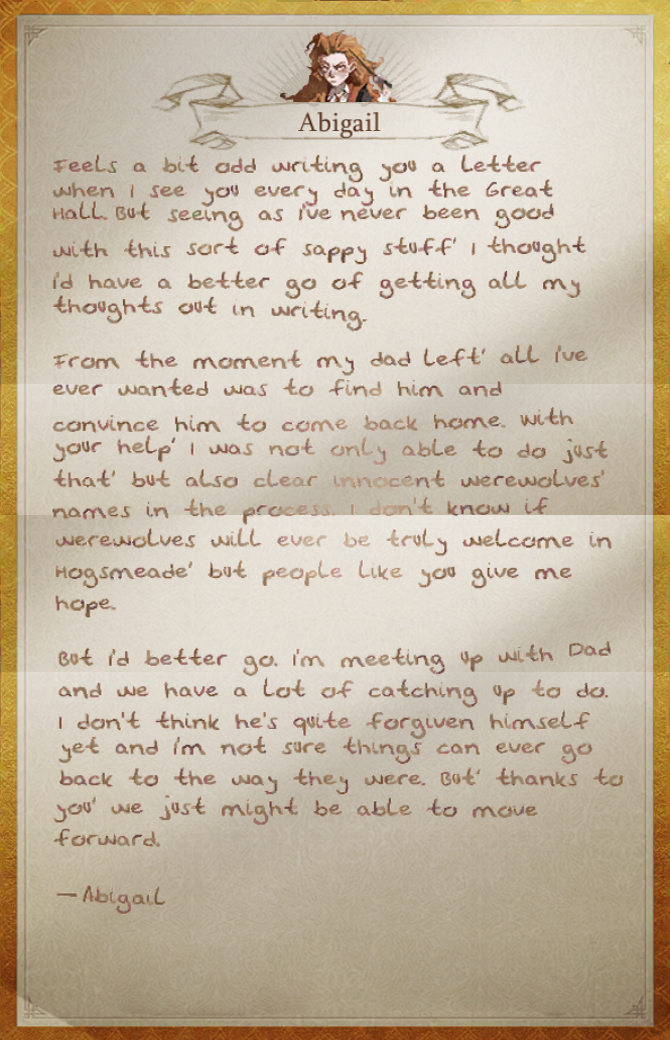 Abigail
Feels a bit odd writing you a letter
when I see you every day in the Great
Hall. But seeing as I've never been good
with this sort of sappy stuff' I thought
I'd have a better go of getting all my
thoughts out in writing.
From the moment my dad left' all I've
ever wanted was to find him and
convince him to come back home. With
your help' I was not only able to do just
that' but also clear innocent werewolves'
names in the process. I don't know if
werewolves will ever be truly welcome in
Hogsmeade' but people like you give me
hope.
But I'd better go. I'm meeting up with Dad
and we have a lot of catching up to do.
I don't think he's quite forgiven himself
yet and I'm not sure things can ever go
back to the way they were. But' thanks to
you' we just might be able to move
forward.
—Abigail